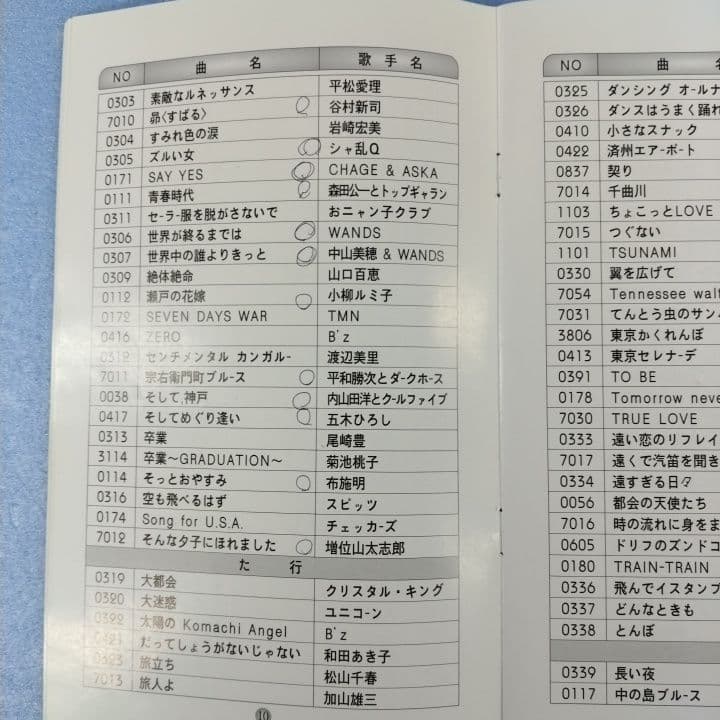 NO 曲 名 歌 手 名
0303 素敵なルネッサンス 平松愛理
7010 昴〈すばる〉 谷村新司
0304 すみれ色の涙 岩崎宏美
0305 ズルい女 シャ乱Q
0171 SAY YES CHAGE & ASKA
0111 青春時代 森田公一とトップギャラン
0311 セーラー服を脱がさないで おニャン子クラブ
0306 世界が終るまでは WANDS
0307 世界中の誰よりきっと 中山美穂 & WANDS
0309 絶体絶命 山口百恵
0112 瀬戸の花嫁 小柳ルミ子
0172 SEVEN DAYS WAR TMN
0416 ZERO B'z
0312 センチメンタル カンガルー 渡辺美里
7011 宗右衛門町ブルース 平和勝次とダークホース
0038 そして,神戸 内山田洋とクールファイブ
0417 そしてめぐり逢い 五木ひろし
0313 卒業 尾崎豊
3114 卒業〜GRADUATION〜 菊池桃子
0114 そっとおやすみ 布施明
0316 空も飛べるはず スピッツ
0174 Song for U.S.A. チェッカーズ
7012 そんな夕子にほれました 増位山太志郎
た 行
0319 大都会 クリスタル・キング
0320 大迷惑 ユニコーン
0322 太陽の Komachi Angel B'z
0421 だってしょうがないじゃない 和田あき子
0323 旅立ち 松山千春
7013 旅人よ 加山雄三
10
NO 曲
0325 ダンシング オールナ
0326 ダンスはうまく踊れ
0410 小さなスナック
0422 済州エアーポート
0837 契り
7014 千曲川
1103 ちょこっとLOVE
7015 つぐない
1101 TSUNAMI
0330 翼を広げて
7054 Tennessee walt
7031 てんとう虫のサン
3806 東京かくれんぼ
0413 東京セレナーデ
0391 TO BE
0178 Tomorrow never
7030 TRUE LOVE
0333 遠い恋のリフレイ
7017 遠くで汽笛を聞き
0334 遠すぎる日々
0056 都会の天使たち
7016 時の流れに身をま
0605 ドリフのズンドコ
0180 TRAIN-TRAIN
0336 飛んでイスタンブ
0337 どんなときも
0338 とんぼ
0339 長い夜
0117 中の島ブルース